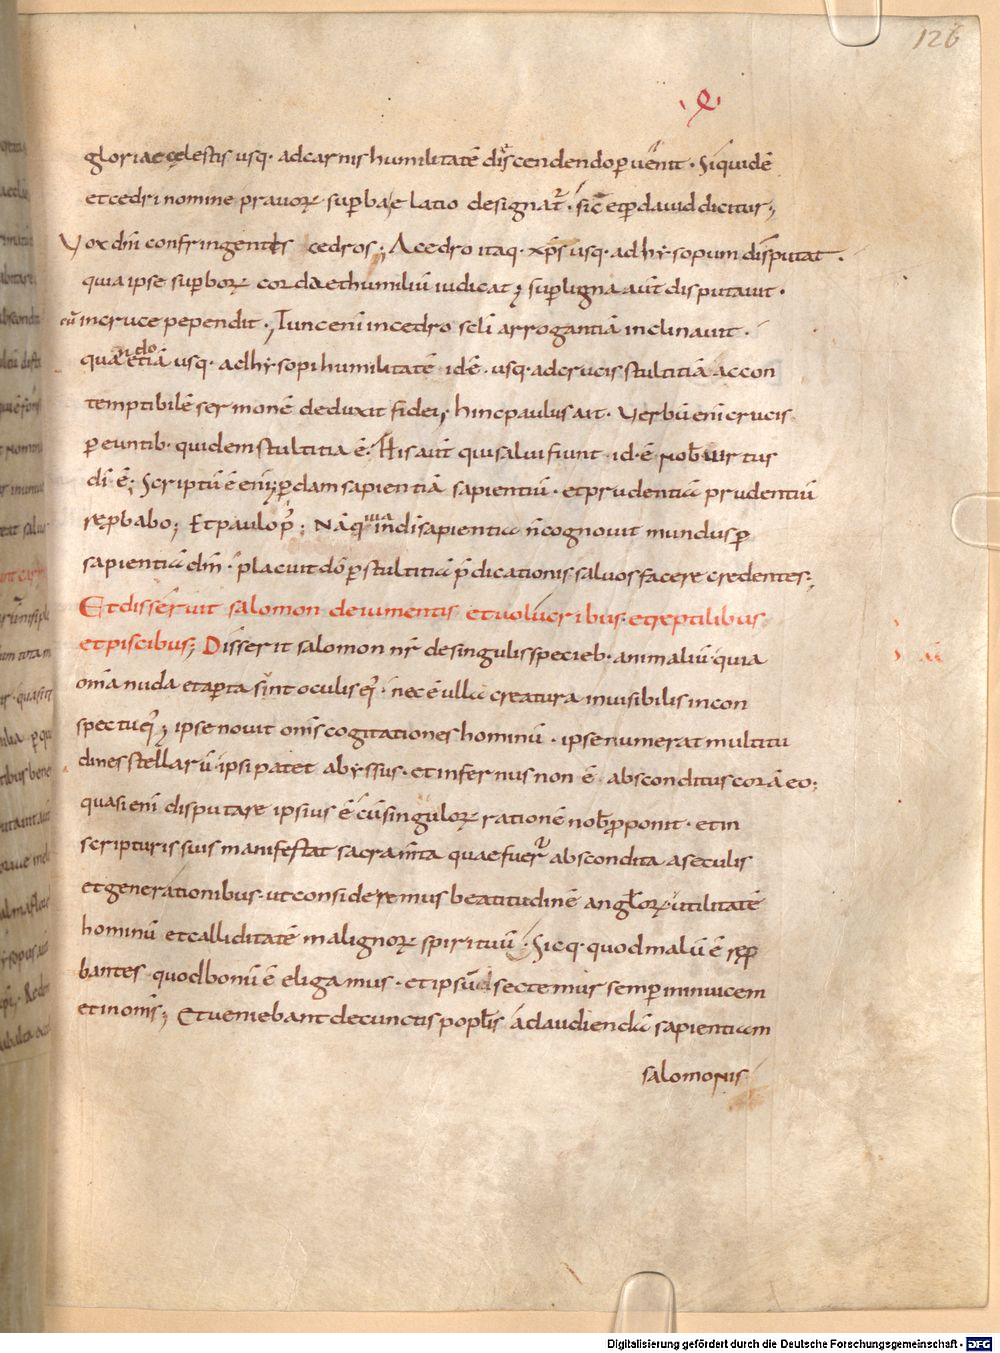 126
gloriae cęlestis usq· ad carnis humilitatē discendendo puenit · Siquidē
et cedri nomine prauoꝝ supba elatio designat᷑ · sic̄ et p dauid dicitur;
Vox dn̄i confringentis cedros; A cedro itaq· xp̄s usq· ad hysopum disputat ·
quia ipse supboꝝ corda et humiliū iudicat; sup ligna aut̄ disputauit ·
cū in cruce pependit ·; Tunc eni in cedro scl̄i arrogantiā inclinauit ·
quando etiā usq· ad hysopi humilitatē · id ē · usq· ad crucis stultitiā ac con
temptibilē sermonē deduxit fidei; hinc paulus ait · Verbū eni crucis
peuntib· quidem stultitia ē · His aut̄ qui salui fiunt · id · ē nob̄ uirtus
dī · ē; Scriptū ē eni; pdam sapientiā sapientiū · et prudentiā prudentiū
repbabo; Et paulo p᷒; Nā q uia in dī sapientia n̄ cognouit mundus p
sapientiā dm̄ · placuit dō p stultitiā p̄dicationis saluos facere credentes;
Et disseruit salomon de iumentis et uolucribus · et reptilibus
et piscibus; Disserit salomon nr̄ de singulis specieb· animaliū · quia
om̄ia nuda et apta sint oculis ei᷒ · nec ē ulla creatura inuisibilis in con
spectu ei᷒; ipse nouit om̄s cogitationes hominū · ipse numerat multitu
dines stellarū · ipsi patet abyssus · et infernus non ē absconditus corā eo;
quasi eni disputare ipsius ē cū singuloꝝ rationē nob̄ pponit · et in
scripturis suis manifestat sacram̄ta quae fuer᷑ abscondita a seculis
et generationibus · ut consideremus beatitudinē angl̄oꝝ · utilitatē
hominū et calliditatē malignoꝝ spirituū · Sicq· quod malū ē rep
bantes quod bonū ē eligamus · et ipsū sectemur semp in inuicem
et in om̄s; Et ueniebant de cunctis popl̄is ad audiendā sapientiam
salomonis
Digitalisierung gefördert durch die Deutsche Forschungsgemeinschaft - DFG